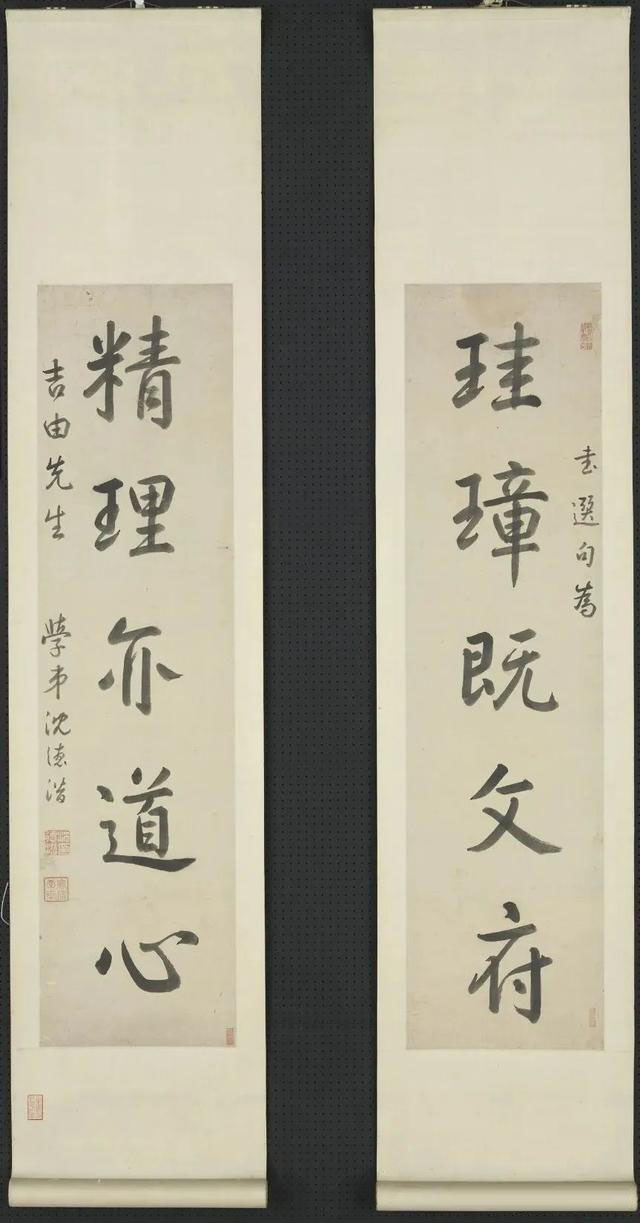 書選句為
珪璋既文府
精理亦道心
吉由先生
學弟沈德潛